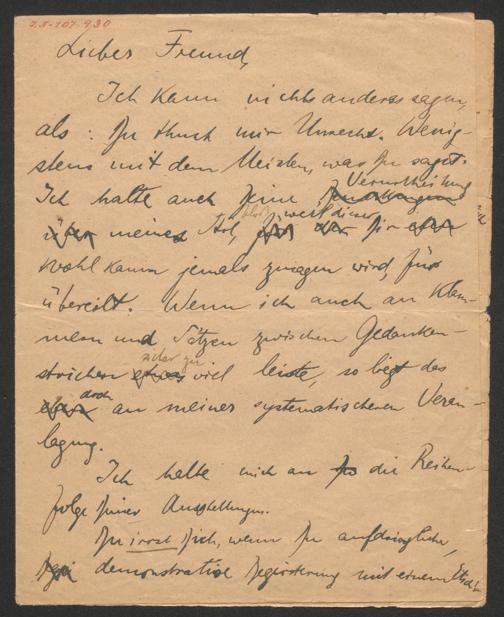 Z.N. 107.930
Lieber Freund,
Ich kann nichts anderes sagen,
als: Du thust mir Unrecht. Wenig-
stens mit dem Meisten, was Du sagst.
Verurtheilung
Ich halte auch Deine
weil dieser
meines Art, Dir
wohl kaum jemals zusagen wird, für
übereilt. Wenn ich auch an Klam-
mern und Sätzen zwischen Gedanken-
zu
strichen viel leiste, so liegt das
doch
an meiner systematischeren Veran-
lagung.
Ich halte mich an die Reihen-
folge Deiner Ausstellungen.
Du irrst Dich, wenn Du aufdringliche,
demonstrative Begeisterung mit einem